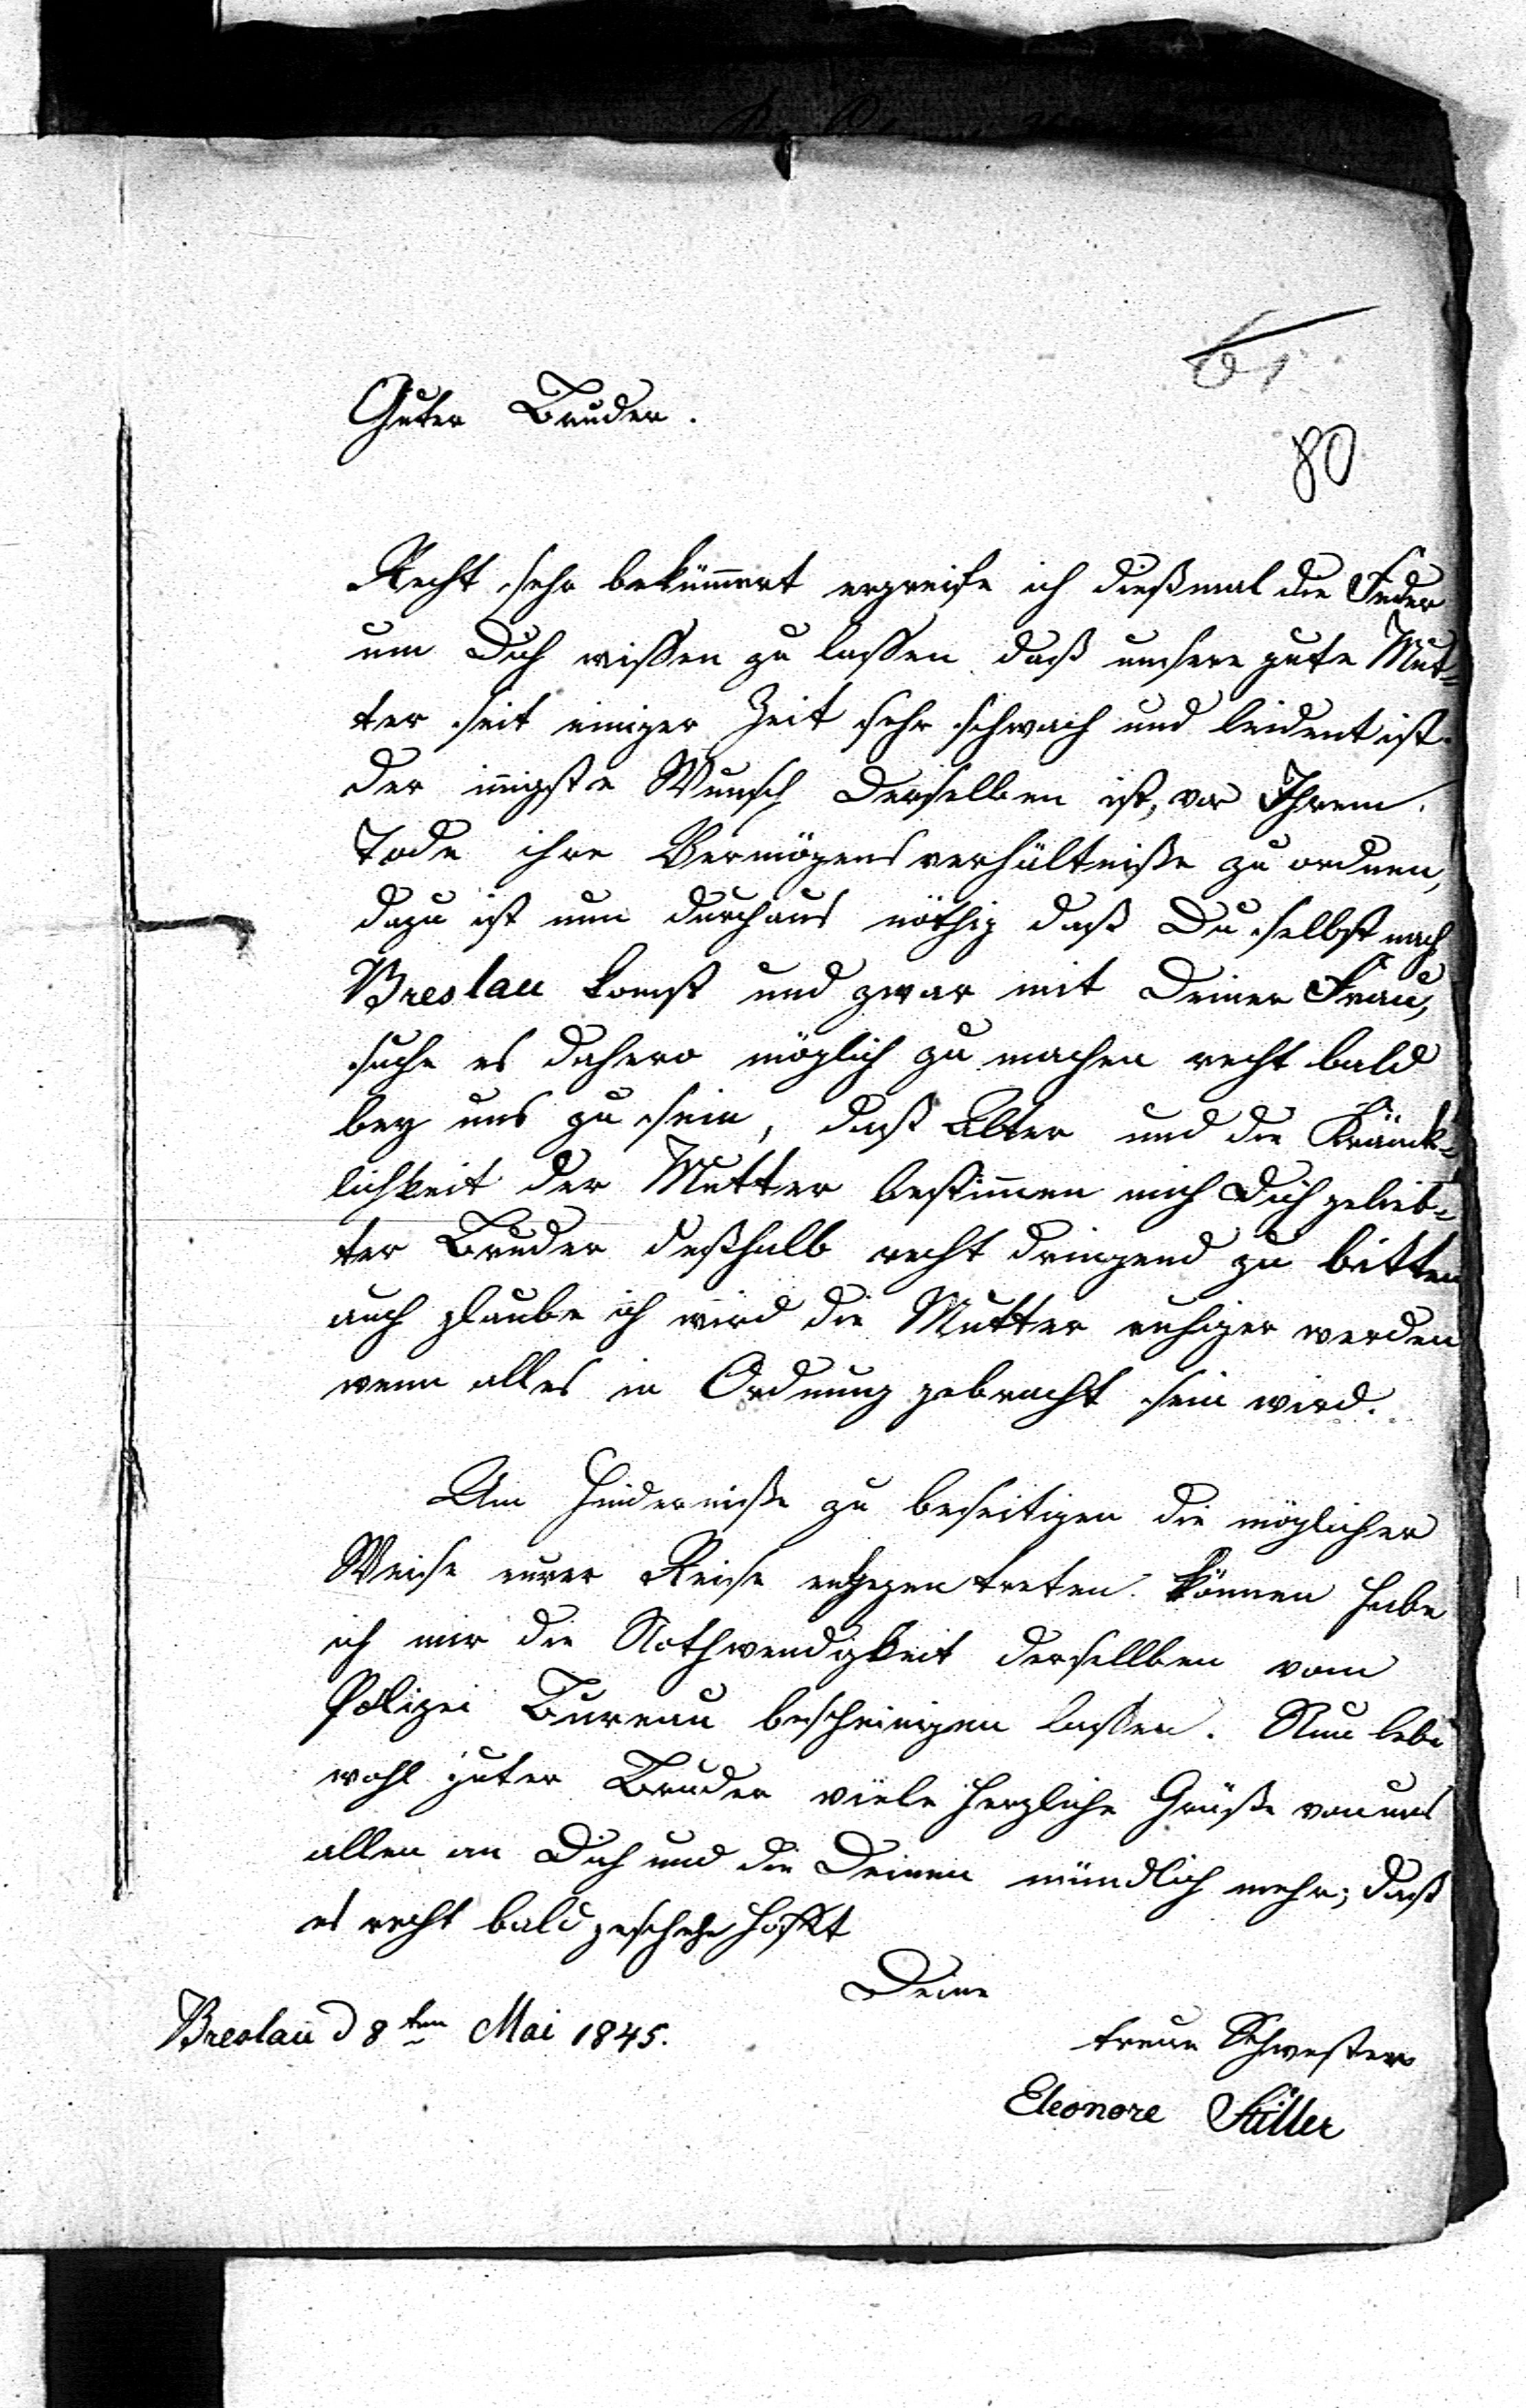 61
Guter Bruder.
80
Recht sehr bekümmert ergreife ich dießmal die Feder
um Dich wissen zu lassen daß unsere gute Mut-
ter seit einiger Zeit sehr schwach und leident ist.
der innigste Wunsch Derselben ist, vor Ihrem
Tode ihre Vermögensverhältniße zu ordnen,
dazu ist nun durchaus nöthig daß Du selbst nach
Breslau komst und zwar mit Deiner Frau,
suche es dahero möglich zu machen recht bald
bey uns zu sein, daß Alter und die Kränk-
lichkeit der Mutter bestimmen mich Dich gelieb-
ter Bruder deßhalb recht dringend zu bitten
auch glaube ich wird die Mutter ruhiger werden
wenn alles in Ordnung gebracht sein wird.
Um Hinderniße zu beseitigen die möglicher
Weise eurer Reise entgegentreten können habe
ich mir die Nothwendigkeit dersellben vom
Polizei Bureau bescheinigen lassen. Nun lebe
wohl guter Bruder viele herzliche Grüße von uns
allen an Dich und die Deinen mündlich mehr, daß
es recht bald geschehe hofft
Deine
Breslau d 8ten Mai 1845.
treue Schwester
Eleonore